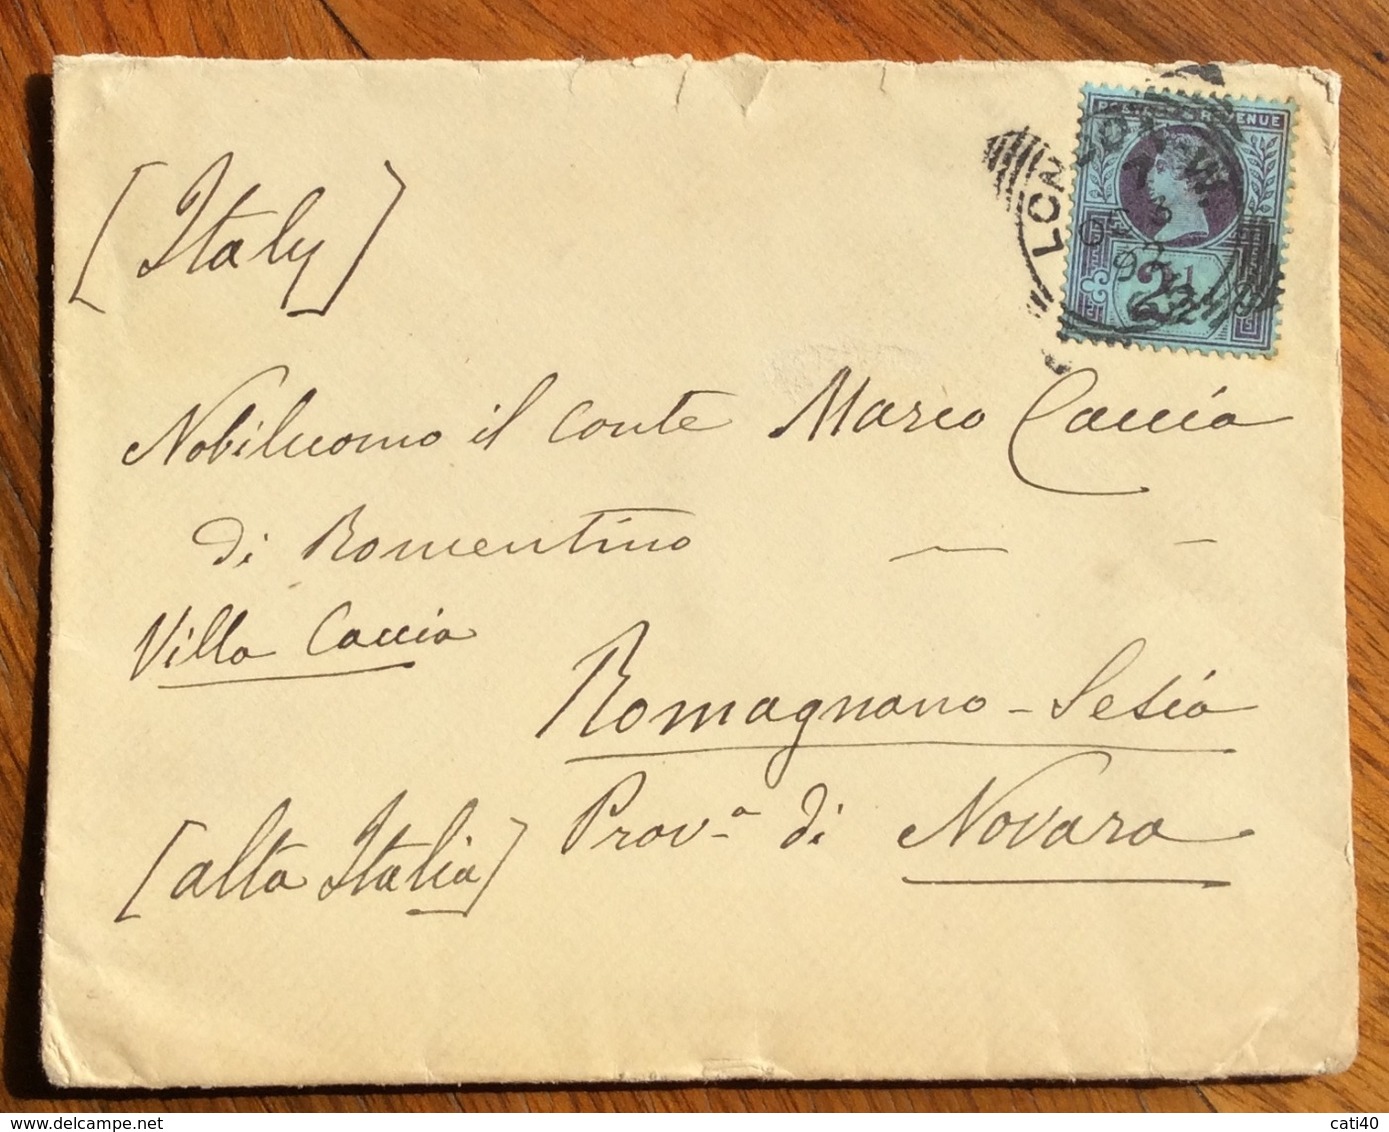 [Italy]
POSTAGE & REVENUE
LONDON.W.
7
DE 3
97
2½
Nobiluomo il Conte Marco Caccia
di Romentino
Villa Caccia
Romagnano-Sesia
Prov.a di Novara
[alta Italia]
delcampe.net
cati40